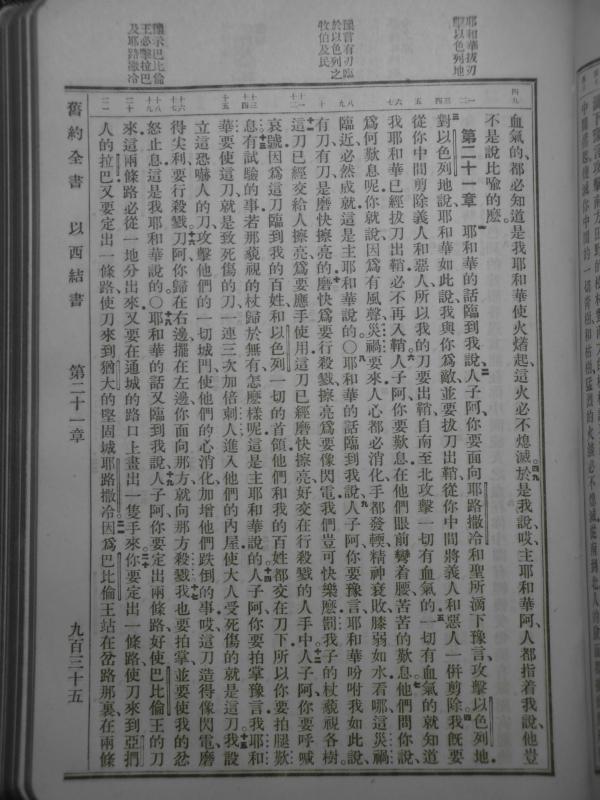 耶和華拔刃
擊以色列地
預言有刃臨
於以色列之
牧伯及民
預示巴比倫
王必擊拉巴
及耶路撒冷
血氣的、都必知道是我耶和華使火㷼起這火必不熄滅於是我說哎主耶和華阿人都指着我說他豈
不是說比喻的麼
第二十一章 耶和華的話臨到我說、人子阿、你要面向耶路撒冷和聖所滴下豫言、攻擊以色列地、
對以色列地說、耶和華如此說、我與你爲敵、並要拔刀出鞘、從你中間將義人和惡人一併剪除我旣要
從你中間剪除義人和惡人、所以我的刀要出鞘、自南至北攻擊一切有血氣的、一切有血氣的就知道
我耶和華已經拔刀出鞘、必不再入鞘人子阿、你要歎息、在他們眼前彎着腰、苦苦的歎息他們問你說、
爲何歎息呢、你就說、因爲有風聲、災禍要來、人心都必消化、手都發輭、精神衰敗、膝弱如水、看哪這災禍
臨近必然成就、這是主耶和華說的〇耶和華的話臨到我說、人子阿、你要豫言、耶和華吩咐我如此說、
有刀、有刀、是磨快擦亮的、磨快爲要行殺戮、擦亮爲要像閃電、我們豈可快樂麼、罰我子的杖藐視各樹
這刀已經交給人擦亮、爲要應手使用、這刀已經磨快擦亮、好交在行殺戮的人手中人子阿、你要呼喊
哀號、因爲這刀臨到我的百姓、和以色列一切的首領、他們和我的百姓都交在刀下、所以你要拍腿歎
息有試驗的事、若那藐視的杖歸於無有、怎麼樣呢、這是主耶和華說的人子阿、你要拍掌豫言、我耶和
華要使這刀、就是致死傷的刀、一連三次加倍刺人、進入他們的內屋、使大人受死傷的、就是這刀我設
立這恐嚇人的刀、攻擊他們的一切城門、使他們的心消化、加增他們跌倒的事、哎、這刀造得像閃電、磨
得尖利、要行殺戮刀阿、你歸在右邊、擺在左邊、你面向那方、就向那方殺戮我也要拍掌、並要使我的忿
怒止息、這是我耶和華說的〇耶和華的話又臨到我說、人子阿、你要定出兩條路、好使巴比倫王的刀
來、這兩條路必從一地分出來、又要在通城的路口上畫出一隻手來你要定出一條路、使刀來到亞捫
人的拉巴、又要定出一條路、使刀來到猶大的堅固城耶路撒冷因爲巴比倫王站在岔路那裏、在兩條
舊約全書 以西結書 第二十一章 九百三十五